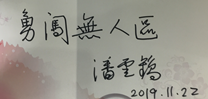 勇闖無人區
潘雲鶴
2019.11.22